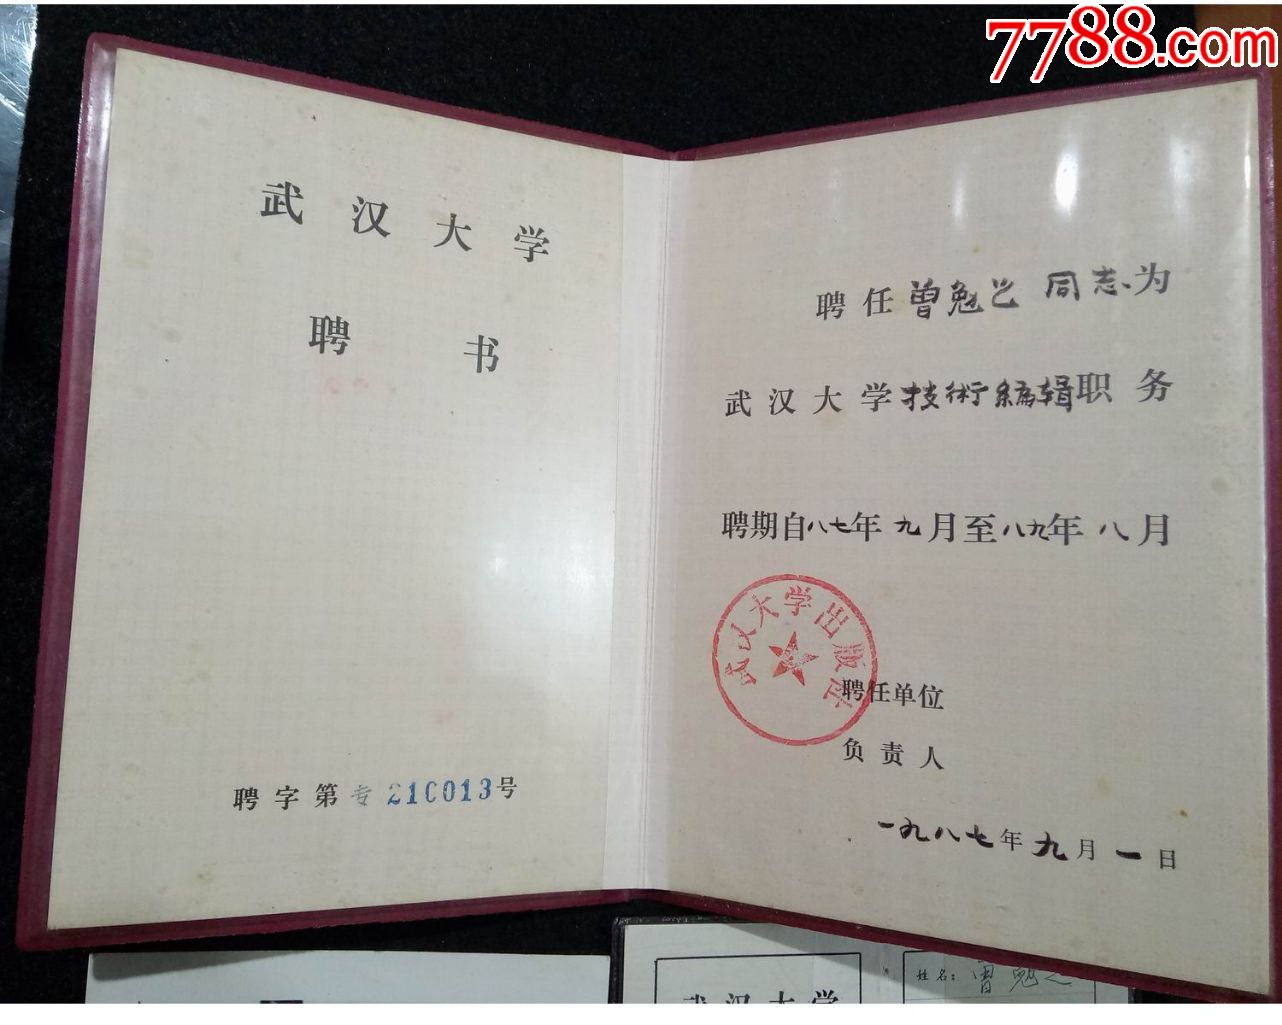 7788.com
武汉大学
聘书
聘字第专210013号
聘任曾勉之同志为
武汉大学技術编辑职务
聘期自八七年九月至八九年八月
武汉大学出版社
聘任单位
负责人
一九八七年九月一日
武汉大学
姓名：曾勉之